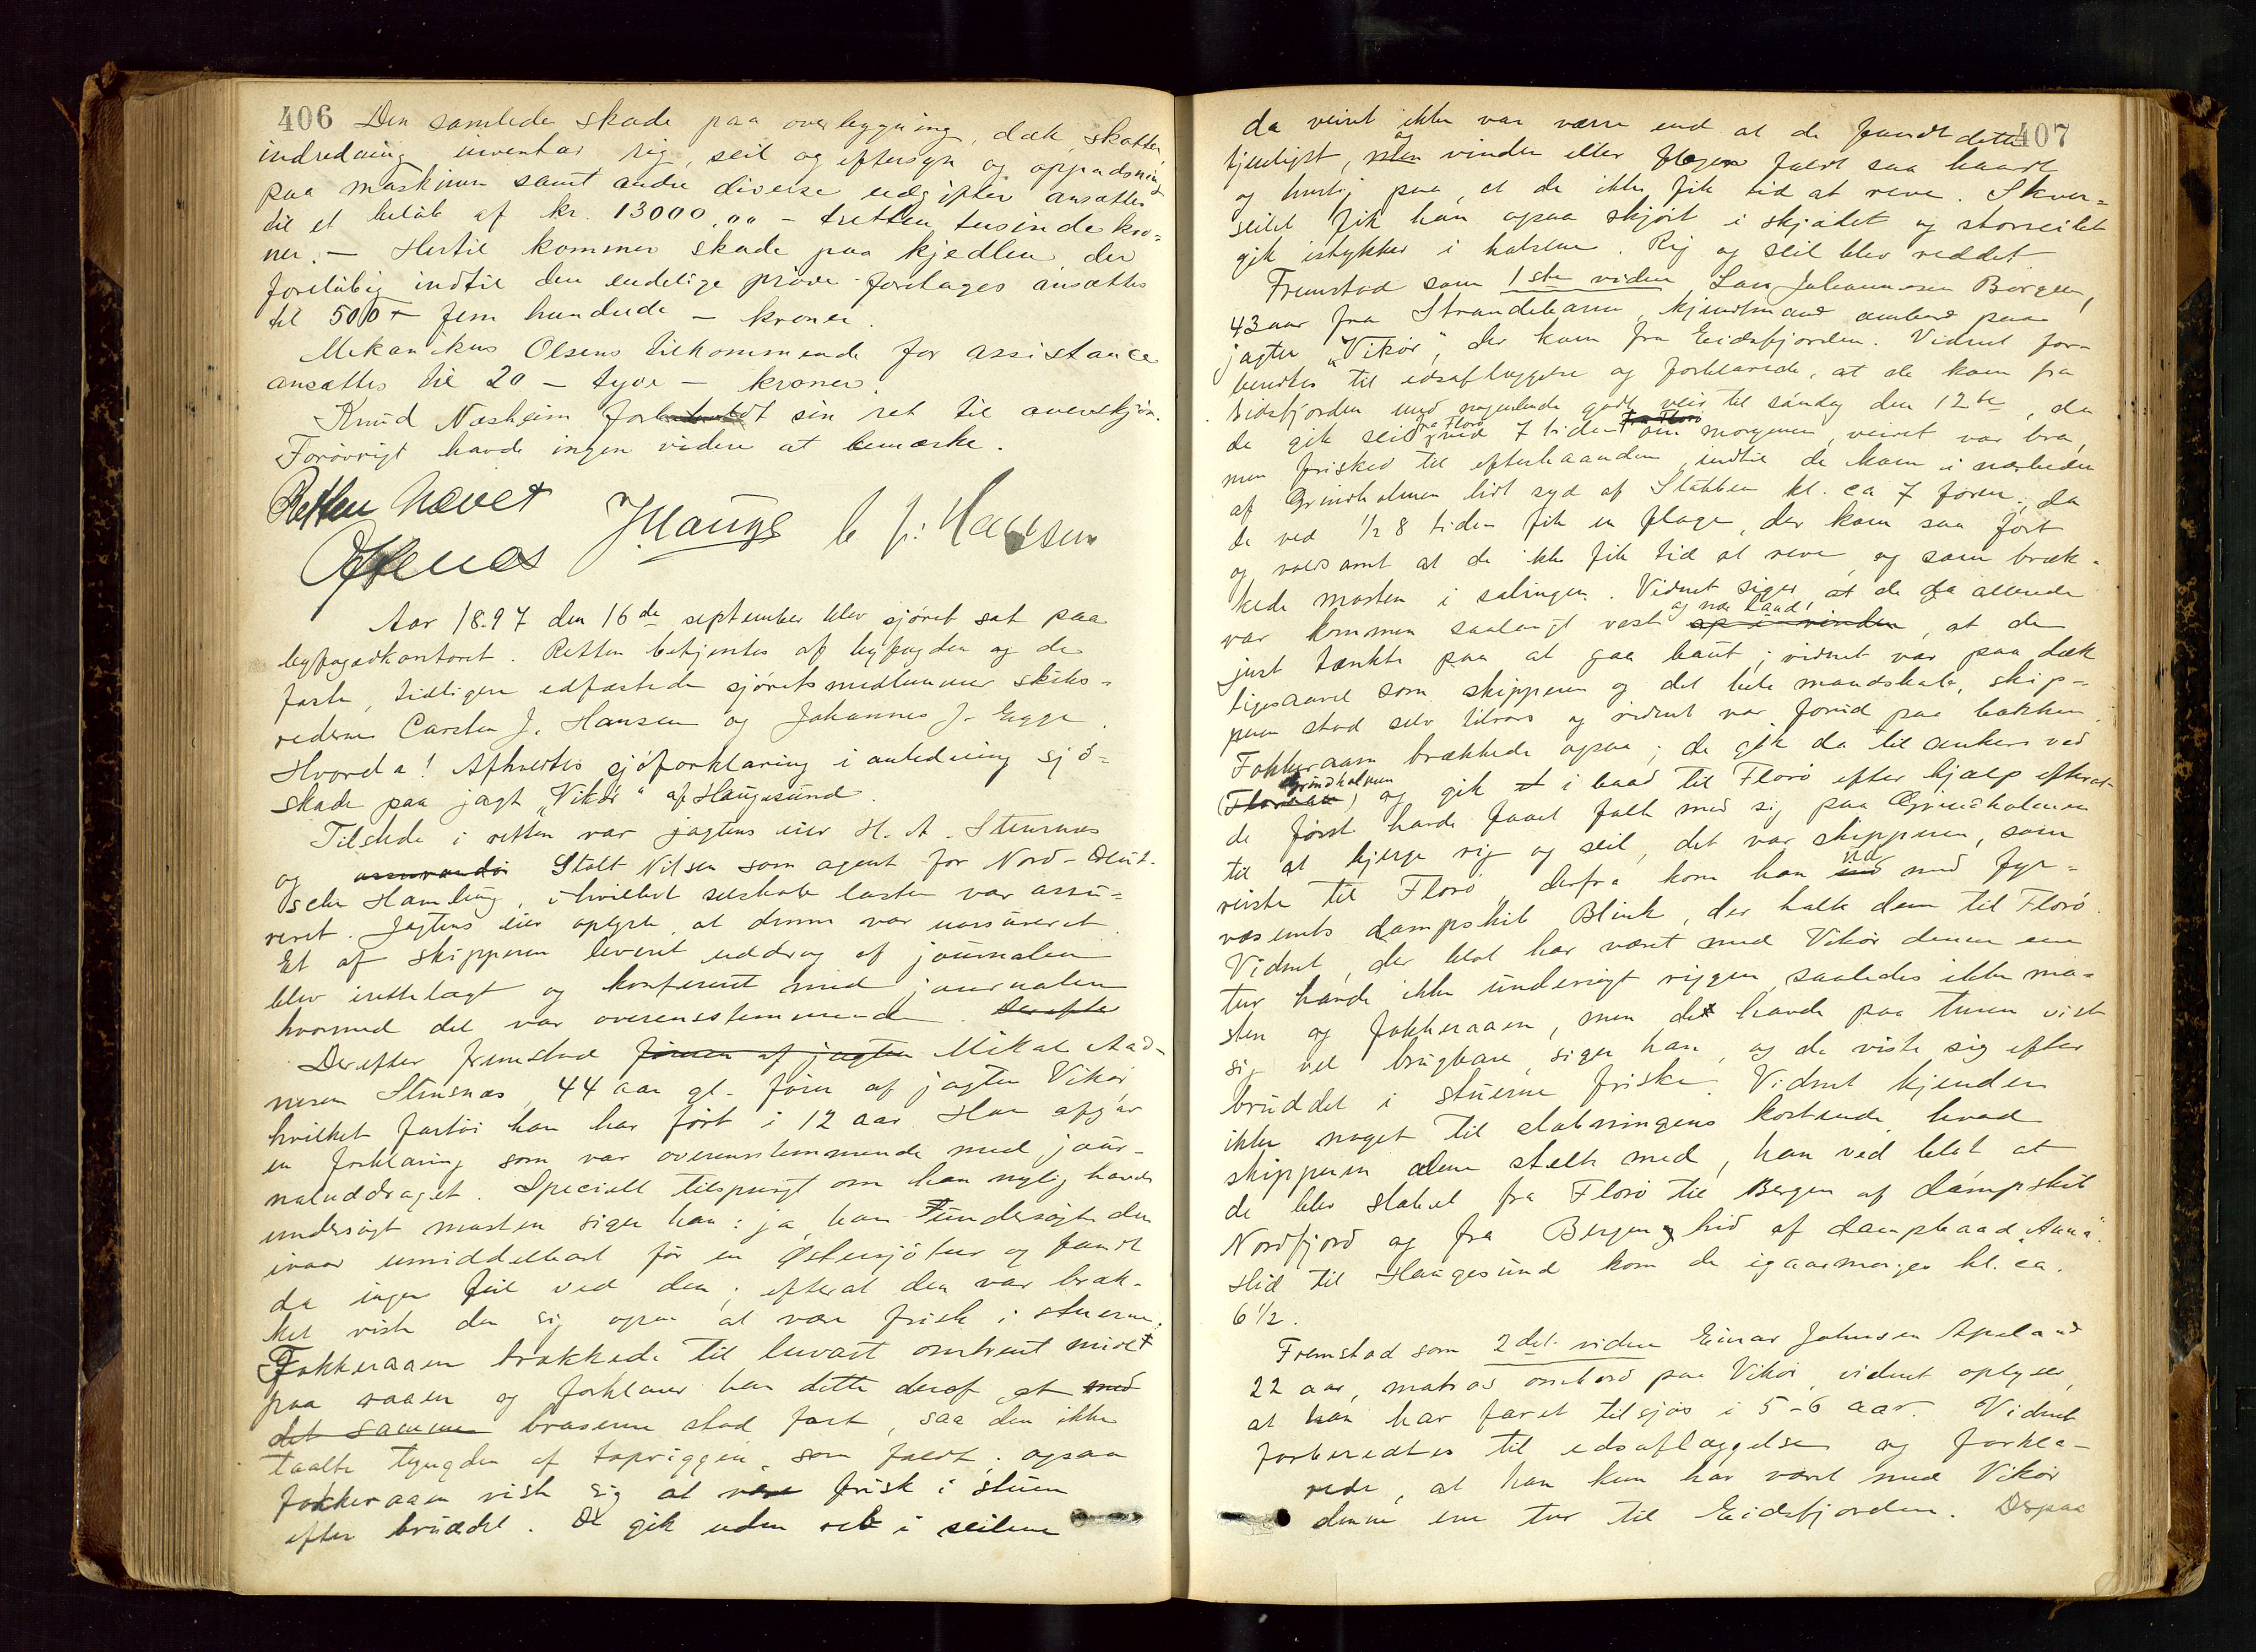 406
Den samlede skade paa overbygning, dæk, skotter,
indredning inventar rig, seil og eftersyn og oppudsning
paa maskinen samt andre diverse udgifter ansættes
til et beløb af kr. 13000,00 – tretten tusinde kro=
ner. – Hertil kommer skade paa kjedlen, der
foreløbig indtil den endelige prøve foretages ansættes
til 500 – fem hundrede – kroner.
Mekanikus Olsens tilkommende for assistance
ansættes til 20 – tyve – kroner.
Knud Næsheim forbeholdt sin ret til overskjøn.
Forøvrigt havde ingen videre at bemærke.
Retten hævet
J Hauge C J. Hanssen
Aar 1897 den 16de september blev sjøret sat paa
byfogedkontoret. Retten betjentes af byfogden og de
faste, tidligere edfæstede sjøretsmedlemmer skibs-
rederne Carsten J. Hansen og Johannes J. Egge.
Hvorda! Afholdtes sjøforklaring i anledning sjø=
skade paa jagt „Vikør“ af Haugesund.
Tilstede i retten var jagtens eier H. A. Stensnæs
og Stolt Nilsen som agent for Nord-Deut-
sche Hamburg, i hvilket selskab lasten var assu=
reret. Jagtens eier oplyste, at denne var uassureret.
Et af skipperen leveret uddrag af journalen
blev irettelagt og konfereret med journalen
hvormed det var overensstemmende. Derefter
Derefter fremstod føreren af jagten Mikal Aad-
nesen Stensnæs, 44 aar gl. fører af jagten Vikør,
hvilket fartøi han har ført i 12 aar. Han afgav
en forklaring som var overensstemmende med jour-
naluddraget. Specielt tilspurgt om han nylig havde
undersøgt masten siger han: ja, han undersøgte den
ivaar umiddelbart før en Østersjøtur og fandt
da ingen feil ved den; efterat den var bræk-
ket viste den sig ogsaa at være frisk i stuerne.
Fokkeraaen brækkede til luvart omtrent midt
paa raaen og forklarer han dette deraf at med
det samme braserne stod fast, saa den ikke
taalte tyngden af topriggen, som faldt. ogsaa
fokkeraaen viste sig at være frisk i stuen
efter bruddet. De gik uden reb i seilene
407
da veiret ikke var værre end at de fandt dette
tjenligst, men og vinden eller flagen faldt saa haardt
og hurtig paa, at de ikke fik tid at reve. Skver=
seilet fik han ogsaa skjørt i skjødet og storseilet
gik istykker i halsene. Rig og seil blev reddet
Fremstod som 1ste vidne Lars Johannesen Børgeen,
43 aar fra Strandebarm, kjendtmand ombord paa
jagten „Vikør“, der kom fra Eidsfjorden. Vidnet for-
beredtes til edsaflæggelse og forklarede, at de kom fra
Eidsfjorden med nogenlunde godt veir til søndag den 12te, da
de gik seil fra Florø ved 7 tiden fra Florø om morgenen, veiret var bra,
men frisked til efterhaanden, indtil de kom i nærheden
af Grindholmen lidt syd af Stabben kl. ca 7 form., da
de ved 1/2 8 tiden fik en flage, der kom saa fort
og voldsomt at de ikke fik tid at reve, og som bræk-
kede masten i salingen. Vidnet siger, at de da allerede
var kommen saalangt vest og nær land! op i vinden, at de
just tænkte paa at gaa baut; vidnet var paa dæk
ligesaavel som skipperen og det hele mandskab, skip-
peren stod selv tilrors og vidnet var forud paa bakken.
Fokkeraaen brækkede ogsaa; de gik da til ankers ved
Grindholmen og gik i baad til Florø efter hjælp efterat
de først havde faaet folk med sig paa Grindholmen
til at bjerge rig og seil, det var skipperen, som
reiste til Florø, derfra kom han ud med fyr-
væsenets dampskib Blink, der halte dem til Florø.
Vidnet, der blot har været med Vikør denne ene
tur havde ikke undersøgt riggen, saaledes ikke ma-
sten og fokkeraaen, men det havde paa turen vist
sig vel brugbare, siger han, og de viste sig efter
bruddet i stuerne friske. Vidnet kjender
ikke noget til slæbningens kostende, hvad
skipperen alene stelte med, han ved blot at
de blev slæbet fra Florø til Bergen af dampskib
Nordfjord og fra Bergen hid af dampbaad „Anna“.
Hid til Haugesund kom de igaarmorges kl. ca.
6 1/2.
Fremstod som 2det vidne Einar Johnsen Apeland
22 aar, matros ombord paa Vikør, vidnet oplyser,
at han har faret tilsjøs i 5-6 aar. Vidnet
forberedtes til edsaflæggelse og forkla-
rede, at han kun har været med Vikør
denne ene tur til Eidsfjorden. Ogsaa